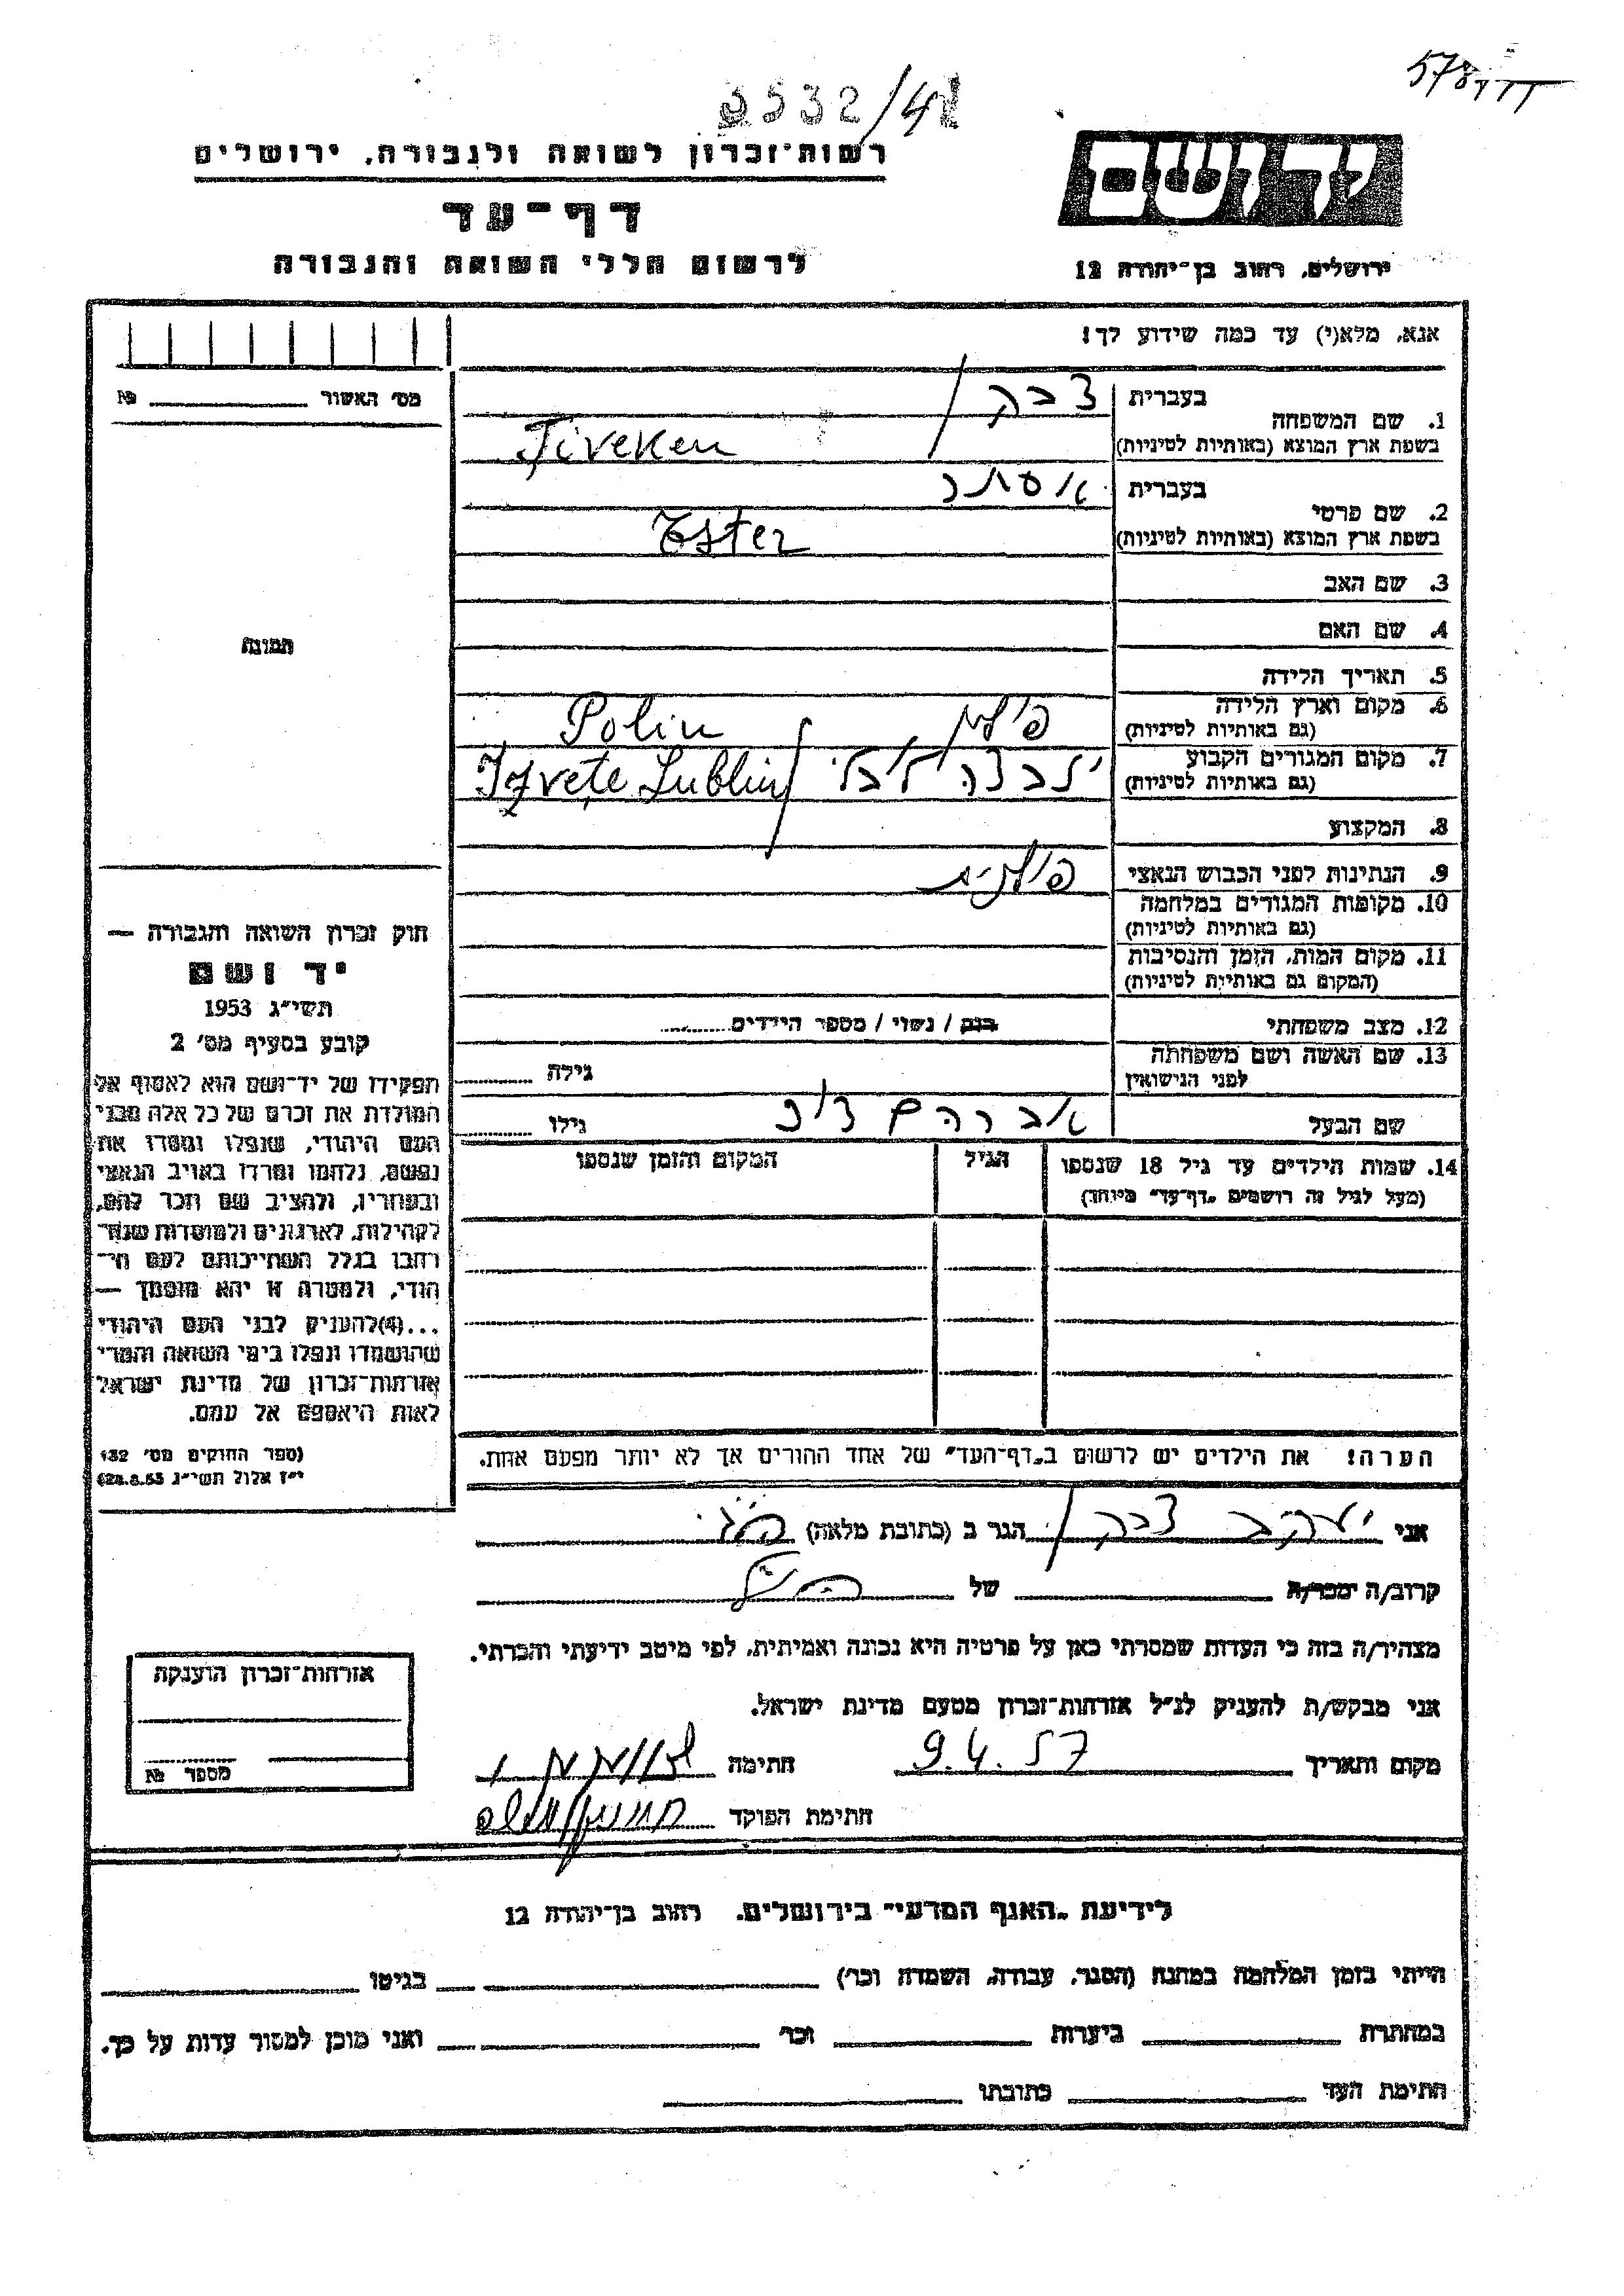 3532/41
רשות־זכרון לשואה ולגבורה, ירושלים
יד ושם
דף־עד
לרשום חללי השואה והגבורה
ירושלים, רחוב בן־יהודה 12
אנא, מלא(י) עד כמה שידוע לך!
מס׳ האשור № 
1. שם המשפחה
בעברית צבקן
בשפת ארץ המוצא (באותיות לטיניות) Ţiveken
2. שם פרטי
בעברית אסתר
בשפת ארץ המוצא (באותיות לטיניות) Ester
3. שם האב
4. שם האם
תמונה
5. תאריך הלידה
6. מקום וארץ הלידה פולין Polin
(גם באותיות לטיניות)
7. מקום המגורים הקבוע Izveţe Lublin
(גם באותיות לטיניות)
8. המקצוע
9. הנתינות לפני הכבוש הנאצי פולנית
10. מקומות המגורים במלחמה
(גם באותיות לטיניות)
11. מקום המות, הזמן והנסיבות
(המקום גם באותיות לטיניות)
12. מצב משפחתי רווק / נשוי / מספר הילדים
13. שם האשה ושם משפחתה גילה
לפני הנישואין
שם הבעל אברהם גילו
14. שמות הילדים עד גיל 18 שנספו הגיל המקום והזמן שנספו
(מעל לגיל זה רושמים „דף־עד” מיוחד)
חוק זכרון השואה והגבורה —
יד ושם
תשי״ג 1953
קובע בסעיף מס׳ 2
תפקידו של יד־ושם הוא לאסוף אל
המולדת את זכרם של כל אלה מבני
העם היהודי, שנפלו ומסרו את
נפשם, נלחמו ומרדו באויב הנאצי
ובעוזריו, ולהציב שם וזכר להם,
לקהילות, לארגונים ולמוסדות שנח־
רבו בגלל השתייכותם לעם הי־
הודי, ולמטרה זו יהא מוסמך —
...(4)להעניק לבני העם היהודי
שהושמדו ונפלו בימי השואה והמרי
אזרחות־זכרון של מדינת ישראל
לאות היאספם אל עמם.
(ספר החוקים מס׳ 132
י״ז אלול תשי״ג 28.8.53)
הערה! את הילדים יש לרשום ב„דף־העד” של אחד ההורים אך לא יותר מפעם אחת.
אני יעקב צבקן הגר ב (כתובת מלאה)
קרוב/ה ימכר/ה של
מצהיר/ה בזה כי העדות שמסרתי כאן על פרטיה היא נכונה ואמיתית, לפי מיטב ידיעתי והכרתי.
אני מבקש/ת להעניק לנ״ל אזרחות־זכרון מטעם מדינת ישראל.
מקום ותאריך 9.4.57 חתימה
חתימת הפוקד
אזרחות־זכרון הוענקה
מספר №
לידיעת „האגף המדעי” בירושלים, רחוב בן־יהודה 12
הייתי בזמן המלחמה במחנה (הסגר, עבודה, השמדה וכו׳) בגיטו
במחתרת ביערות וכו׳ ואני מוכן למסור עדות על כך.
חתימת העד כתובתו